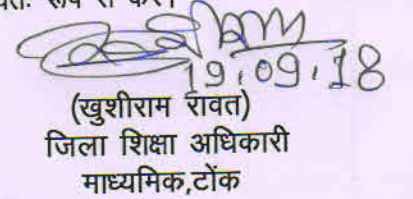 रूप से करें।
19.09.18
(खुशीराम रावत)
जिला शिक्षा अधिकारी
माध्यमिक,टोंक